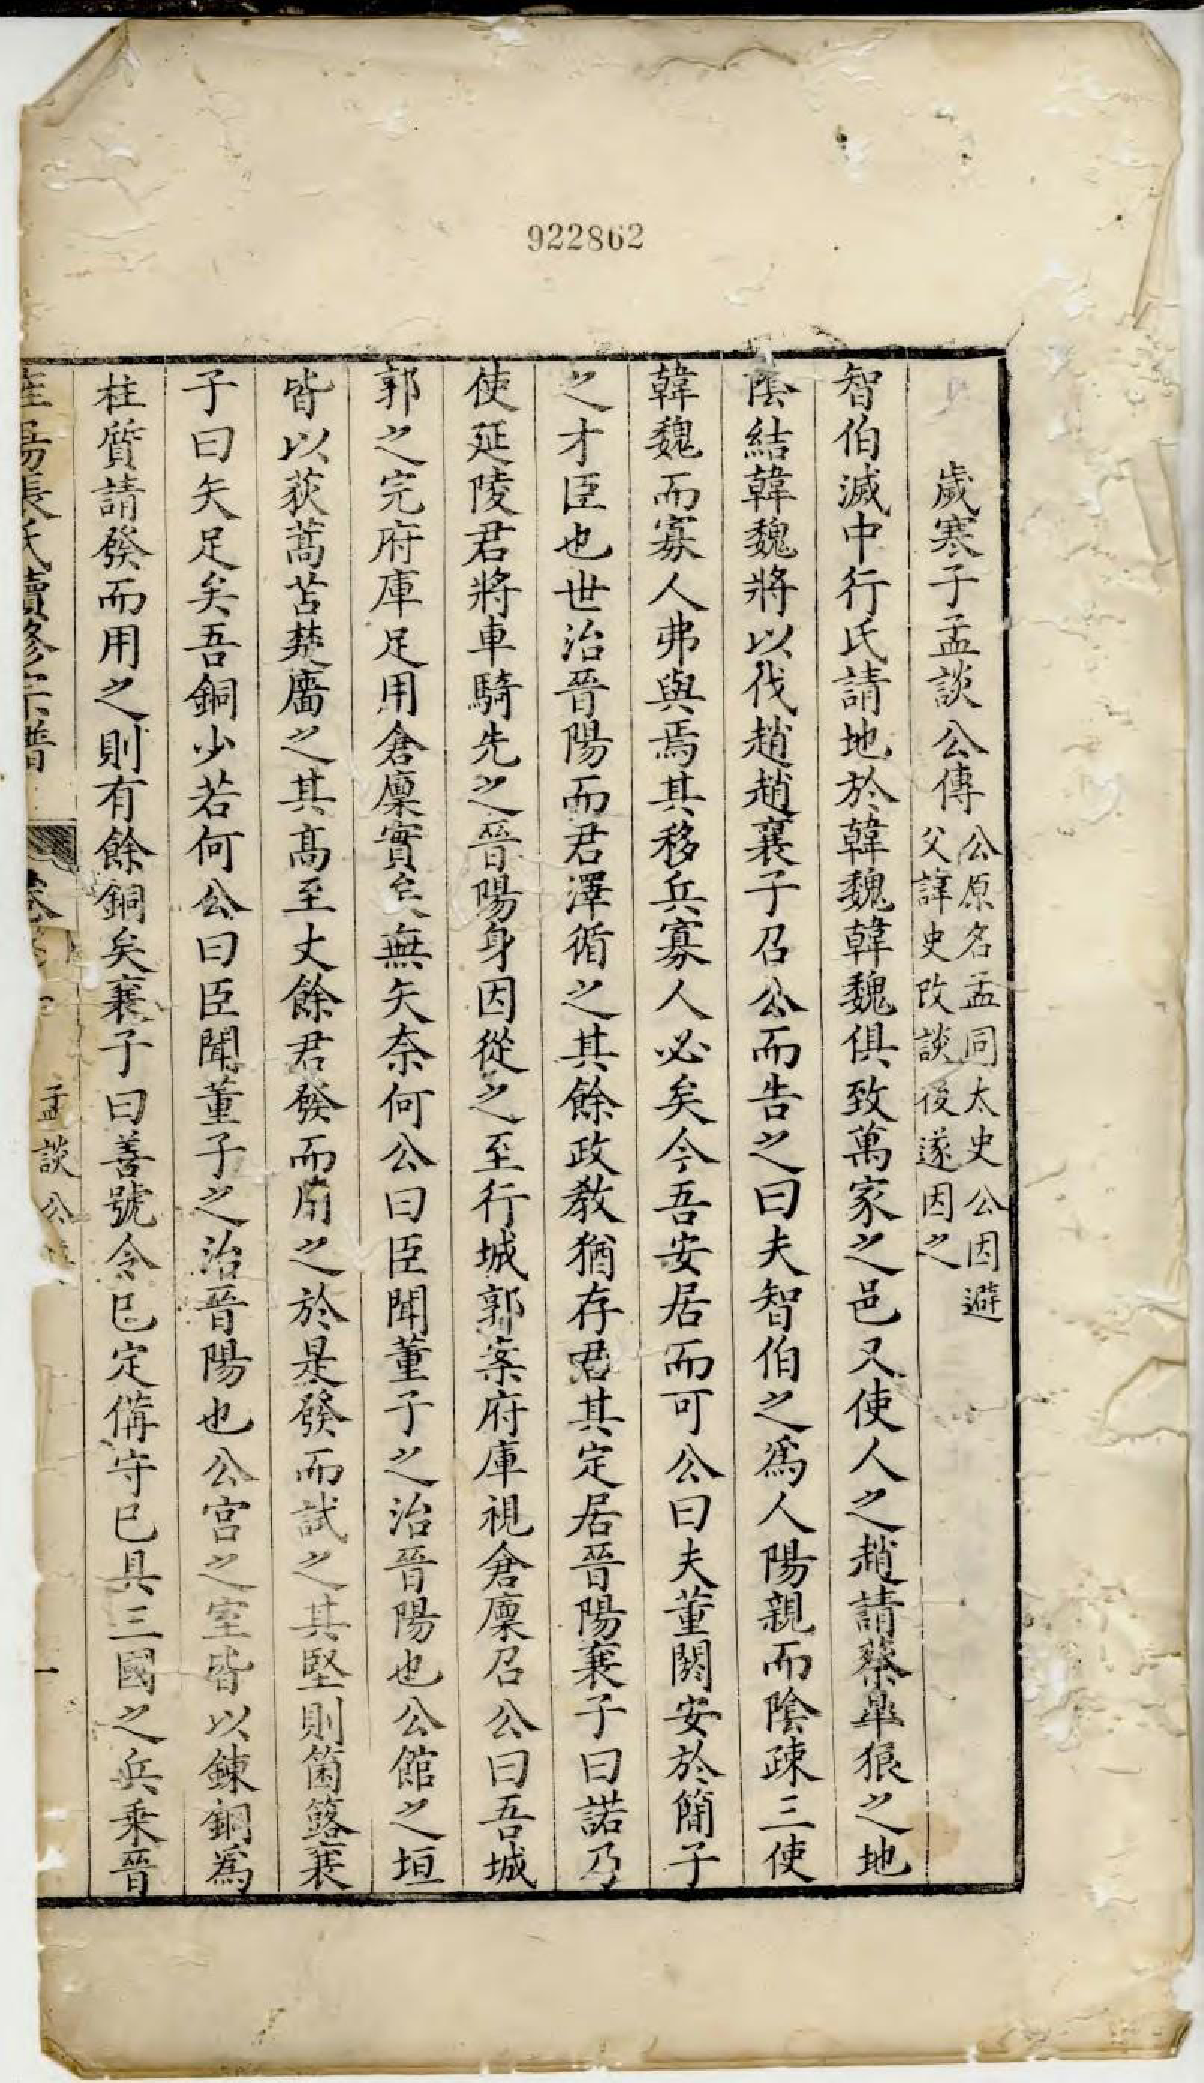 922862
歲寒子孟談公傳
公原名孟同太史公因避
父諱史改談後遂因之
智伯滅中行氏請地於韓魏韓魏俱致萬家之邑又使人之趙請蔡臯狼之地
陰結韓魏將以伐趙趙襄子召公而告之曰夫智伯之爲人陽親而陰疎三使
韓魏而寡人弗與焉其移兵寡人必矣今吾安居而可公曰夫董閼安於簡子
之才臣也世治晉陽而君澤循之其餘政教猶存君其定居晉陽襄子曰諾乃
使延陵君將車騎先之晉陽身因從之至行城郭案府庫視倉廩召公曰吾城
郭之完府庫足用倉廩實矣無矢奈何公曰臣聞董子之治晉陽也公館之垣
皆以荻蒿苫楚廧之其高至丈餘君發而用之於是發而試之其堅則箘簬襄
子曰矢足矣吾銅少若何公曰臣聞董子之治晉陽也公宮之室皆以鍊銅爲
柱質請發而用之則有餘銅矣襄子曰善號令已定備守已具三國之兵乗晉
張氏續修宗譜 卷 孟談公 一